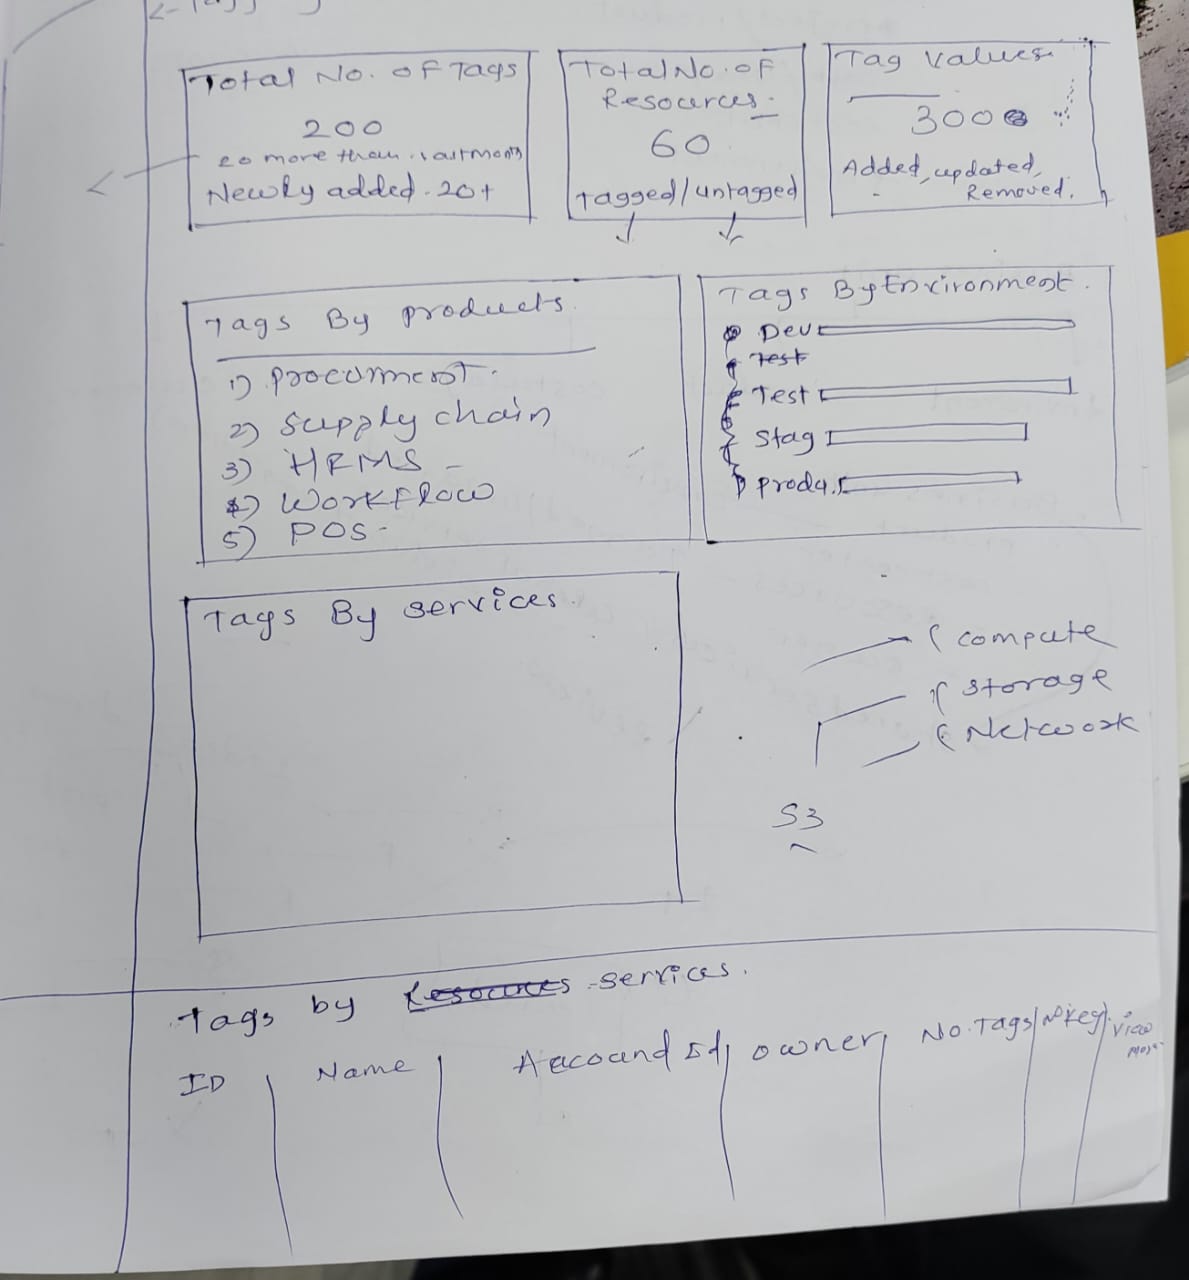 Total No. of Tags
200
20 more than last month
Newly added 20+
Total No. of
Resources
60
Tagged/untagged
Tag Values
300
Added, updated,
Removed.
Tags By products.
1) procument.
2) Supply chain
3) HRMS
4) Workflow
5) POS
Tags By Environment.
Dev
Test
Test
Stag
Tags By services.
compute
storage
Network
S3
Tags by services.
ID
Name
Id
owner
No. Tags
key
View
More